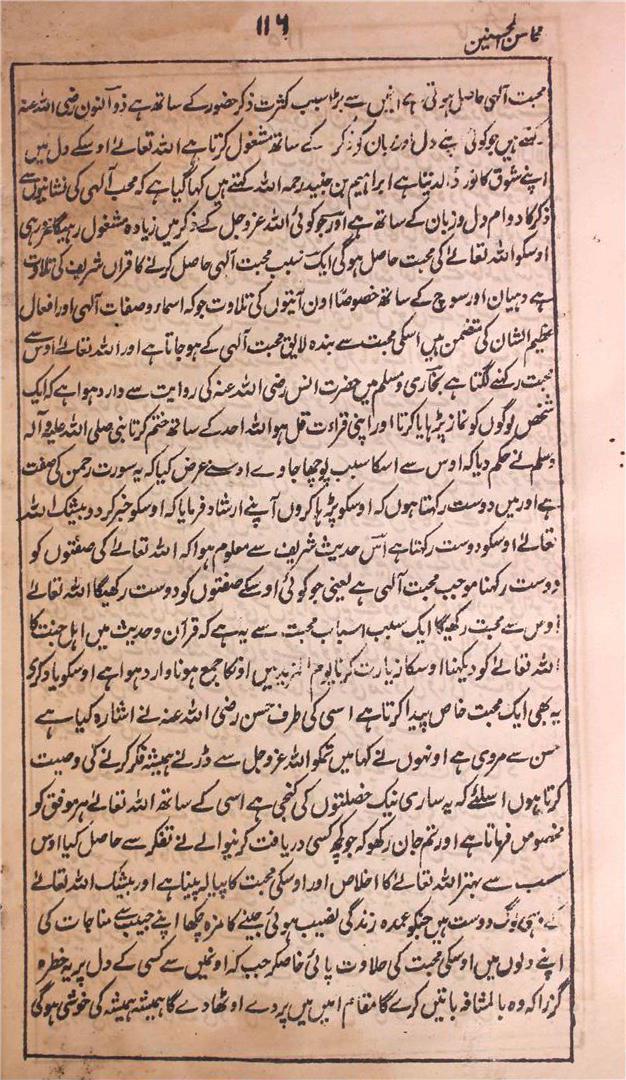 ۱۱۶
محاسن المحسنین
محبت آلہی حاصل ہوتی ہے انمیں سے بڑا سبب کثرت ذکر حضور کے ساتھ ہے ذوالنون رضی اللہ عنہ
کہتے ہیں جو کوئی اپنے دل اور زبان کو ذکر کے ساتھ مشغول کرتا ہے اللہ تعالےٰ اوسکے دل میں
اپنے شوق کا نور ڈالدیتا ہے ابراہیم بن جنید رحمہ اللہ کہتے ہیں کہا گیا ہے کہ محب آلہی کی نشانیوں سے
ذکر کا دوام دل و زبان کے ساتھ ہے اور جو کوئی اللہ عز وجل کے ذکر میں زیادہ مشغول رہیگا
اوسکو اللہ تعالےٰ کی محبت حاصل ہوگی ایک سبب محبت آلہی حاصل کرنے کا قرآن شریف کی تلاوت
ہے دہیان اور سوچ کے ساتھ خصوصًا اون آیتوں کی تلاوت جو کہ اسماء و صفات آلہی اور افعال
عظیم الشان کی متضمن ہیں اسکی محبت سے بندہ لایق محبت آلہی کے ہو جاتا ہے اور اللہ تعالےٰ اوس سے
محبت رکھنے لگتا ہے بخاری و مسلم میں حضرت انس رضی اللہ عنہ کی روایت سے وارد ہوا ہے کہ ایک
شخص لوگوں کو نماز پڑہایا کرتا اور اپنی قراءت قل ہو اللہ احد کے ساتھ ختم کرتا نبی صلی اللہ علیہ و آلہ
وسلم نے حکم دیا کہ اوس سے اسکا سبب پوچھا جاوے اوسنے عرض کیا کہ یہ سورت رحمن کی صفت
ہے اور میں دوست رکہتا ہوں کہ اوسکو پڑہا کروں آپنے ارشاد فرمایا کہ اوسکو خبر کر دو بیشک اللہ
تعالےٰ اوسکو دوست رکہتا ہے اس حدیث شریف سے معلوم ہوا کہ اللہ تعالےٰ کی صفتوں کو
دوست رکہنا موجب محبت آلہی ہے یعنی جو کوئی اوسکے صفتوں کو دوست رکھیگا اللہ تعالےٰ
اوس سے محبت رکھیگا ایک سبب اسباب محبت سے یہ ہے کہ قرآن و حدیث میں اہل جنت کا
اللہ تعالےٰ کو دیکہنا اوسکا زیارت کرنا یوم المزید میں اونکا جمع ہونا وارد ہوا ہے اوسکو یاد کرے
یہ بھی ایک محبت خاص پیدا کرتا ہے اسی کی طرف حسن رضی اللہ عنہ نے اشارہ کیا ہے
حسن سے مروی ہے اونہوں نے کہا میں تمکو اللہ عز وجل سے ڈرنے ہمیشہ فکر کرنے کی وصیت
کرتا ہوں اسلئے کہ یہ ساری نیک خصلتوں کی کنجی ہے اسی کے ساتھ اللہ تعالےٰ ہر موفق کو
مخصوص فرماتا ہے اور تم جان رکھو کہ جو کچھ کسی دریافت کرنیوالے نے تفکر سے حاصل کیا اوس
سب سے بہتر اللہ تعالےٰ کا اخلاص اور اوسکی محبت کا پیالہ پینا ہے اور بیشک اللہ تعالےٰ
کے وہی لوگ دوست ہیں جنکو عمدہ زندگی نصیب ہوئی جینے کا مزہ چکھا اپنے حبیب سے مناجات کی
اپنے دلوں میں اوسکی محبت کی حلاوت پائی خاصکر جب کہ اونمیں سے کسی کے دل پر یہ خطرہ
گزرا کہ وہ بالمشافہ باتیں کرے گا مقام امین میں پردے اوٹھادے گا ہمیشہ ہمیشہ کی خوشی ہوگی